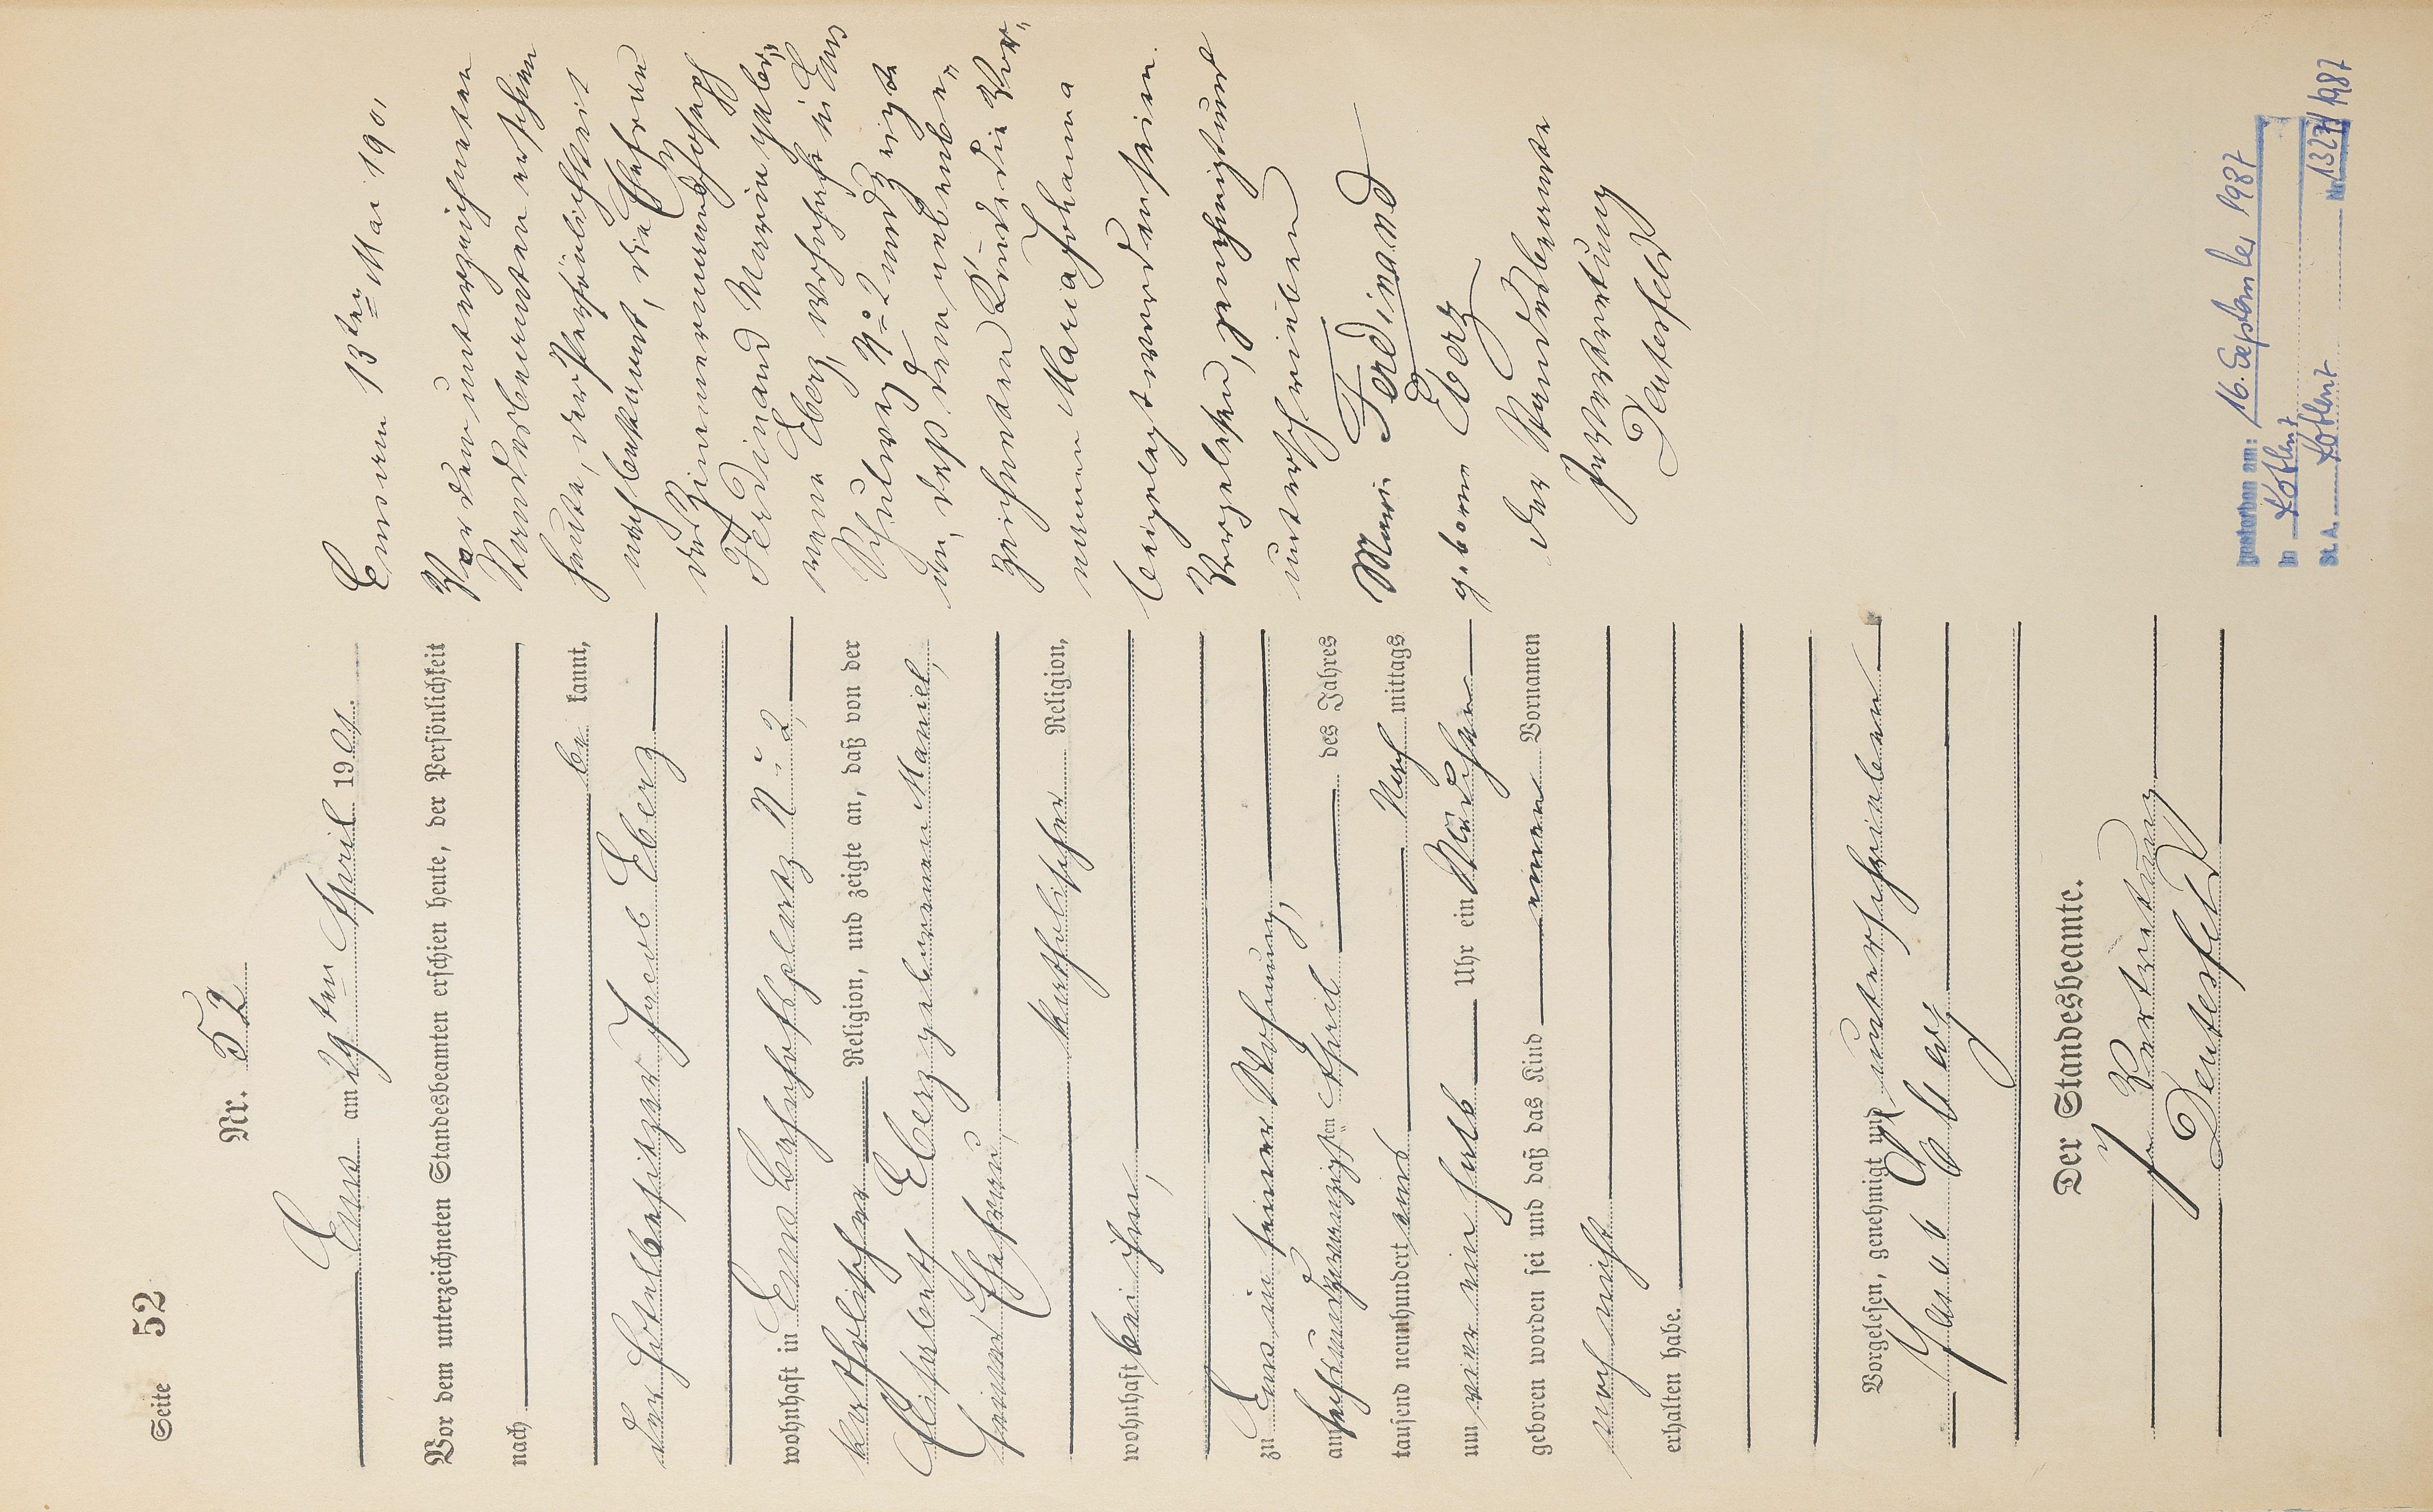 Seite 52
Nr. 52
Ems am 29ten April 1901.
Vor dem unterzeichneten Standesbeamten erschien heute, der Persönlichkeit
nach
be kannt,
der Hotelbesitzer Jacob Eberz
wohnhaft in Ems Bahnhofsplatz No 2,
katholischer Religion, und zeigte an, daß von der
Elisabeth Eberz geborenen Maniel,
seiner Ehefrau,
katholischer Religion,
wohnhaft bei ihm,
zu Ems in seiner Wohnung,
am sechsundzwanzigsten April des Jahres
tausend neunhundert eins Nach mittags
um vier ein halb Uhr ein Mädchen
geboren worden sei und daß das Kind einen Vornamen
noch nicht
erhalten habe.
Vorgelesen, genehmigt und unterschrieben
Jacob Eberz
Der Standesbeamte.
In Vertretung
Deutesfeld
Ems am 13ten Mai 1901
Vor dem unterzeichneten
Standesbeamten erschien
heute, der Persönlichkeit
nach bekannt, die Ehefrau
des Zimmermanns Joseph
Ferdinand Maria gebo-
rene Eberz, wohnhaft in Ems
Schulweg No 2 und zeigte
an, daß dem nebenbe-
zeichneten Kinde die Vor-
namen Maria Johanna
beigelegt worden seien.
Vorgelesen, genehmigt und
unterschrieben
Mari Ferdinand
geborne Eberz
Der Standesbeamte
In Vertretung
Deutesfeld
gestorben am: 16. September 1987
in Koblenz
St. A. Koblenz Nr. 1327/1987